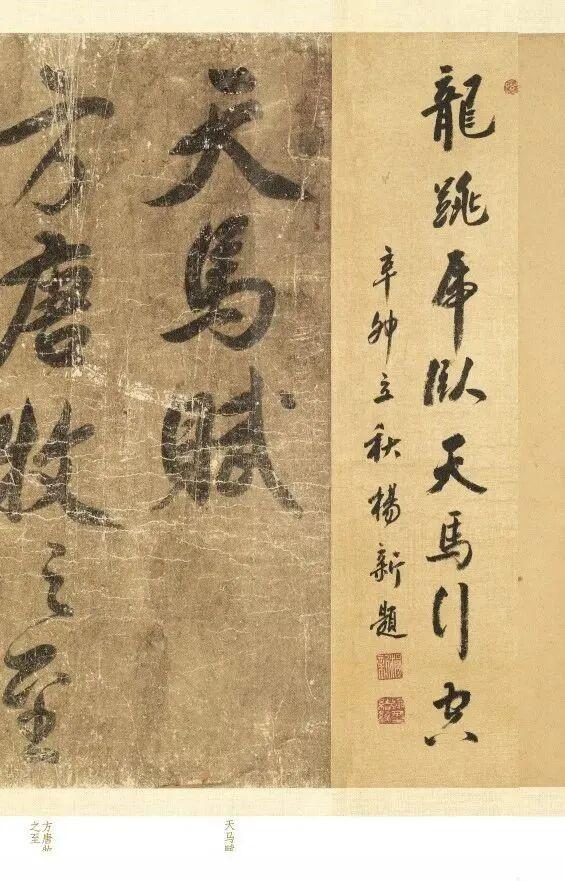 龍跳虎臥天馬行空
辛卯立秋楊新題
天馬賦
方唐牧之至
天马赋
方唐牧
之至